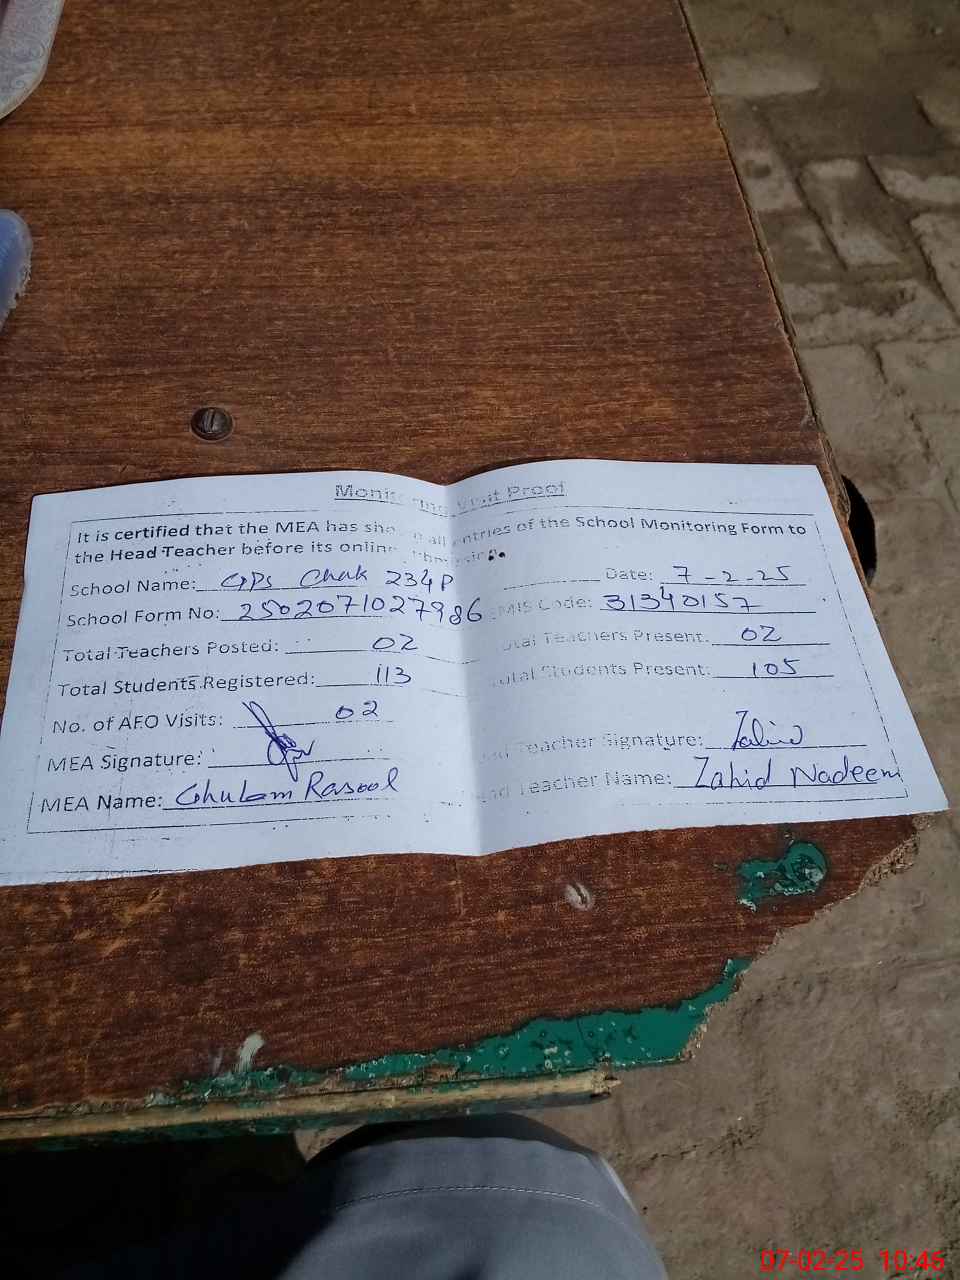 Monitoring Visit Proof
It is certified that the MEA has sho all entries of the School Monitoring Form to
the Head Teacher before its online
School Name: GPS Chak 234P Date: 7-2-25
School Form No: 2502071027986 EMIS Code: 31340157
Total Teachers Posted: 02 Total Teachers Present: 02
Total Students Registered: 113 Total Students Present: 105
No. of AFO Visits: 02
MEA Signature: Teacher Signature: Zahid
MEA Name: Ghulam Rasool Teacher Name: Zahid Nadeem
07-02-25 10:46